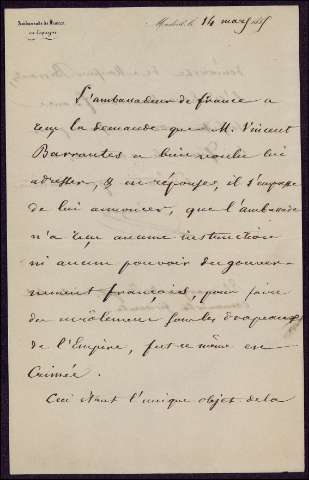 Ambassade de France
en Espagne
Madrid, le 14 mars 1855
L'ambassadeur de france a
reçu la demande que M. Vincent
Barrantes a bien voulu lui
adresser, & en réponse, il s'empresse
de lui annoncer, que l'ambassade
n'a reçu aucune instruction
ni aucun pouvoir du gouver-
nement français, pour faire
des enrôlements sous les drapeaux
de l'Empire, fut ce même en
Crimée.
Ceci étant l'unique objet de la